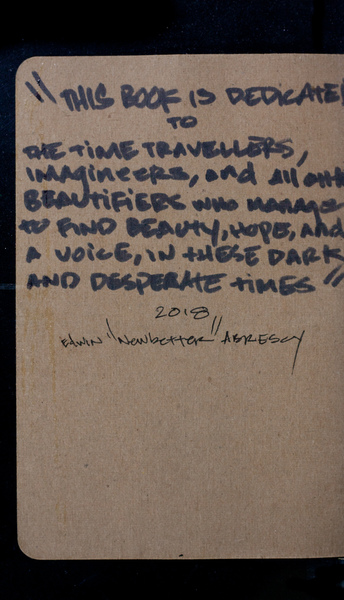 "THIS BOOK IS DEDICATE
TO
THE TIME TRAVELLERS,
IMAGINEERS, and All oth
BEAUTIFIERS who manage
to FIND BEAUTY, HOPE, AND
A VOICE, IN THESE DARK
AND DESPERATE tIMES"
2018
EDWIN "Newbetter" ABRESCY